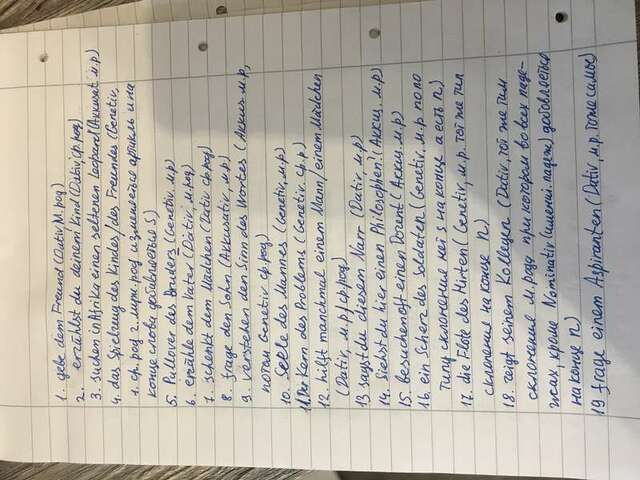 1. gebe dem Freund (Dativ м.род)
2. erzählst du deinem Kind (Dativ, ср.род)
3. suchen in Afrika einen seltenen Leopard (Akkusat. м.р)
4. das Spielzeug des Kindes/des Freundes (Genetiv,
1. ср. род 2. муж. род изменяется артикль и на
конце слова добавляется s)
5. Pullover des Bruders (Genetiv, м.р)
6. erzähle dem Vater (Dativ, м.род)
7. schenkt dem Mädchen (Dativ ср.род)
8. frage den Sohn (Akkusativ, м.р)
9. verstehen den Sinn des Wortes (Аккуз м.р,
потом Genetiv ср.род)
10. Seele des Mannes (Genetiv, м.р)
11. Der Kern des Problems (Genetiv ср.р)
12. hilft manchmal einem Mann/einem Mädchen
(Dativ, м.р/ср.род)
13 sagst du diesem Narr (Dativ. м.р)
14. Siehst du hier einen Philosophen? (Аккуз. м.р)
15. besuchen oft einen Dozent (Аккуз, м.р)
16 ein Scherz des Soldaten (Genetiv, м.р по по
типу склонения нет s на конце а есть n)
17. die Flöte des Hirten (Genetiv, м.р. той же тип
склонения на конце n)
18. zeigt seinem Kollegen (Dativ, той же тип
склонение м.рода при котором во всех паде-
жах, кроме Nominativ (именит. падеж) добавляется
на конце n)
19 frage einem Aspiranten (Dativ, м.р. тоже самое)